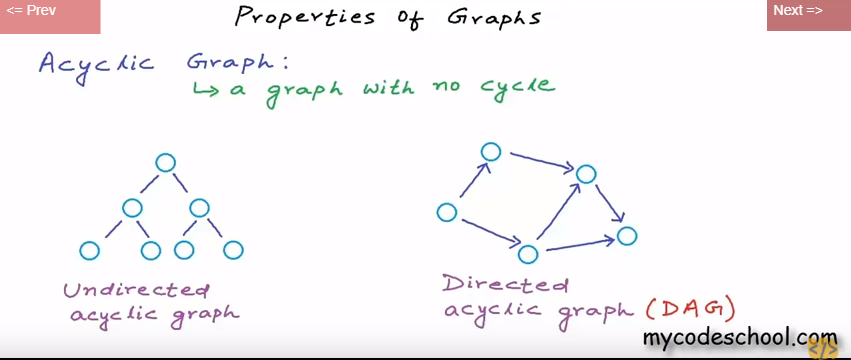 <= Prev
Properties of Graphs
Next =>
Acyclic Graph:
↳ a graph with no cycle
Undirected
acyclic graph
Directed
acyclic graph (DAG)
mycodeschool.com
</>